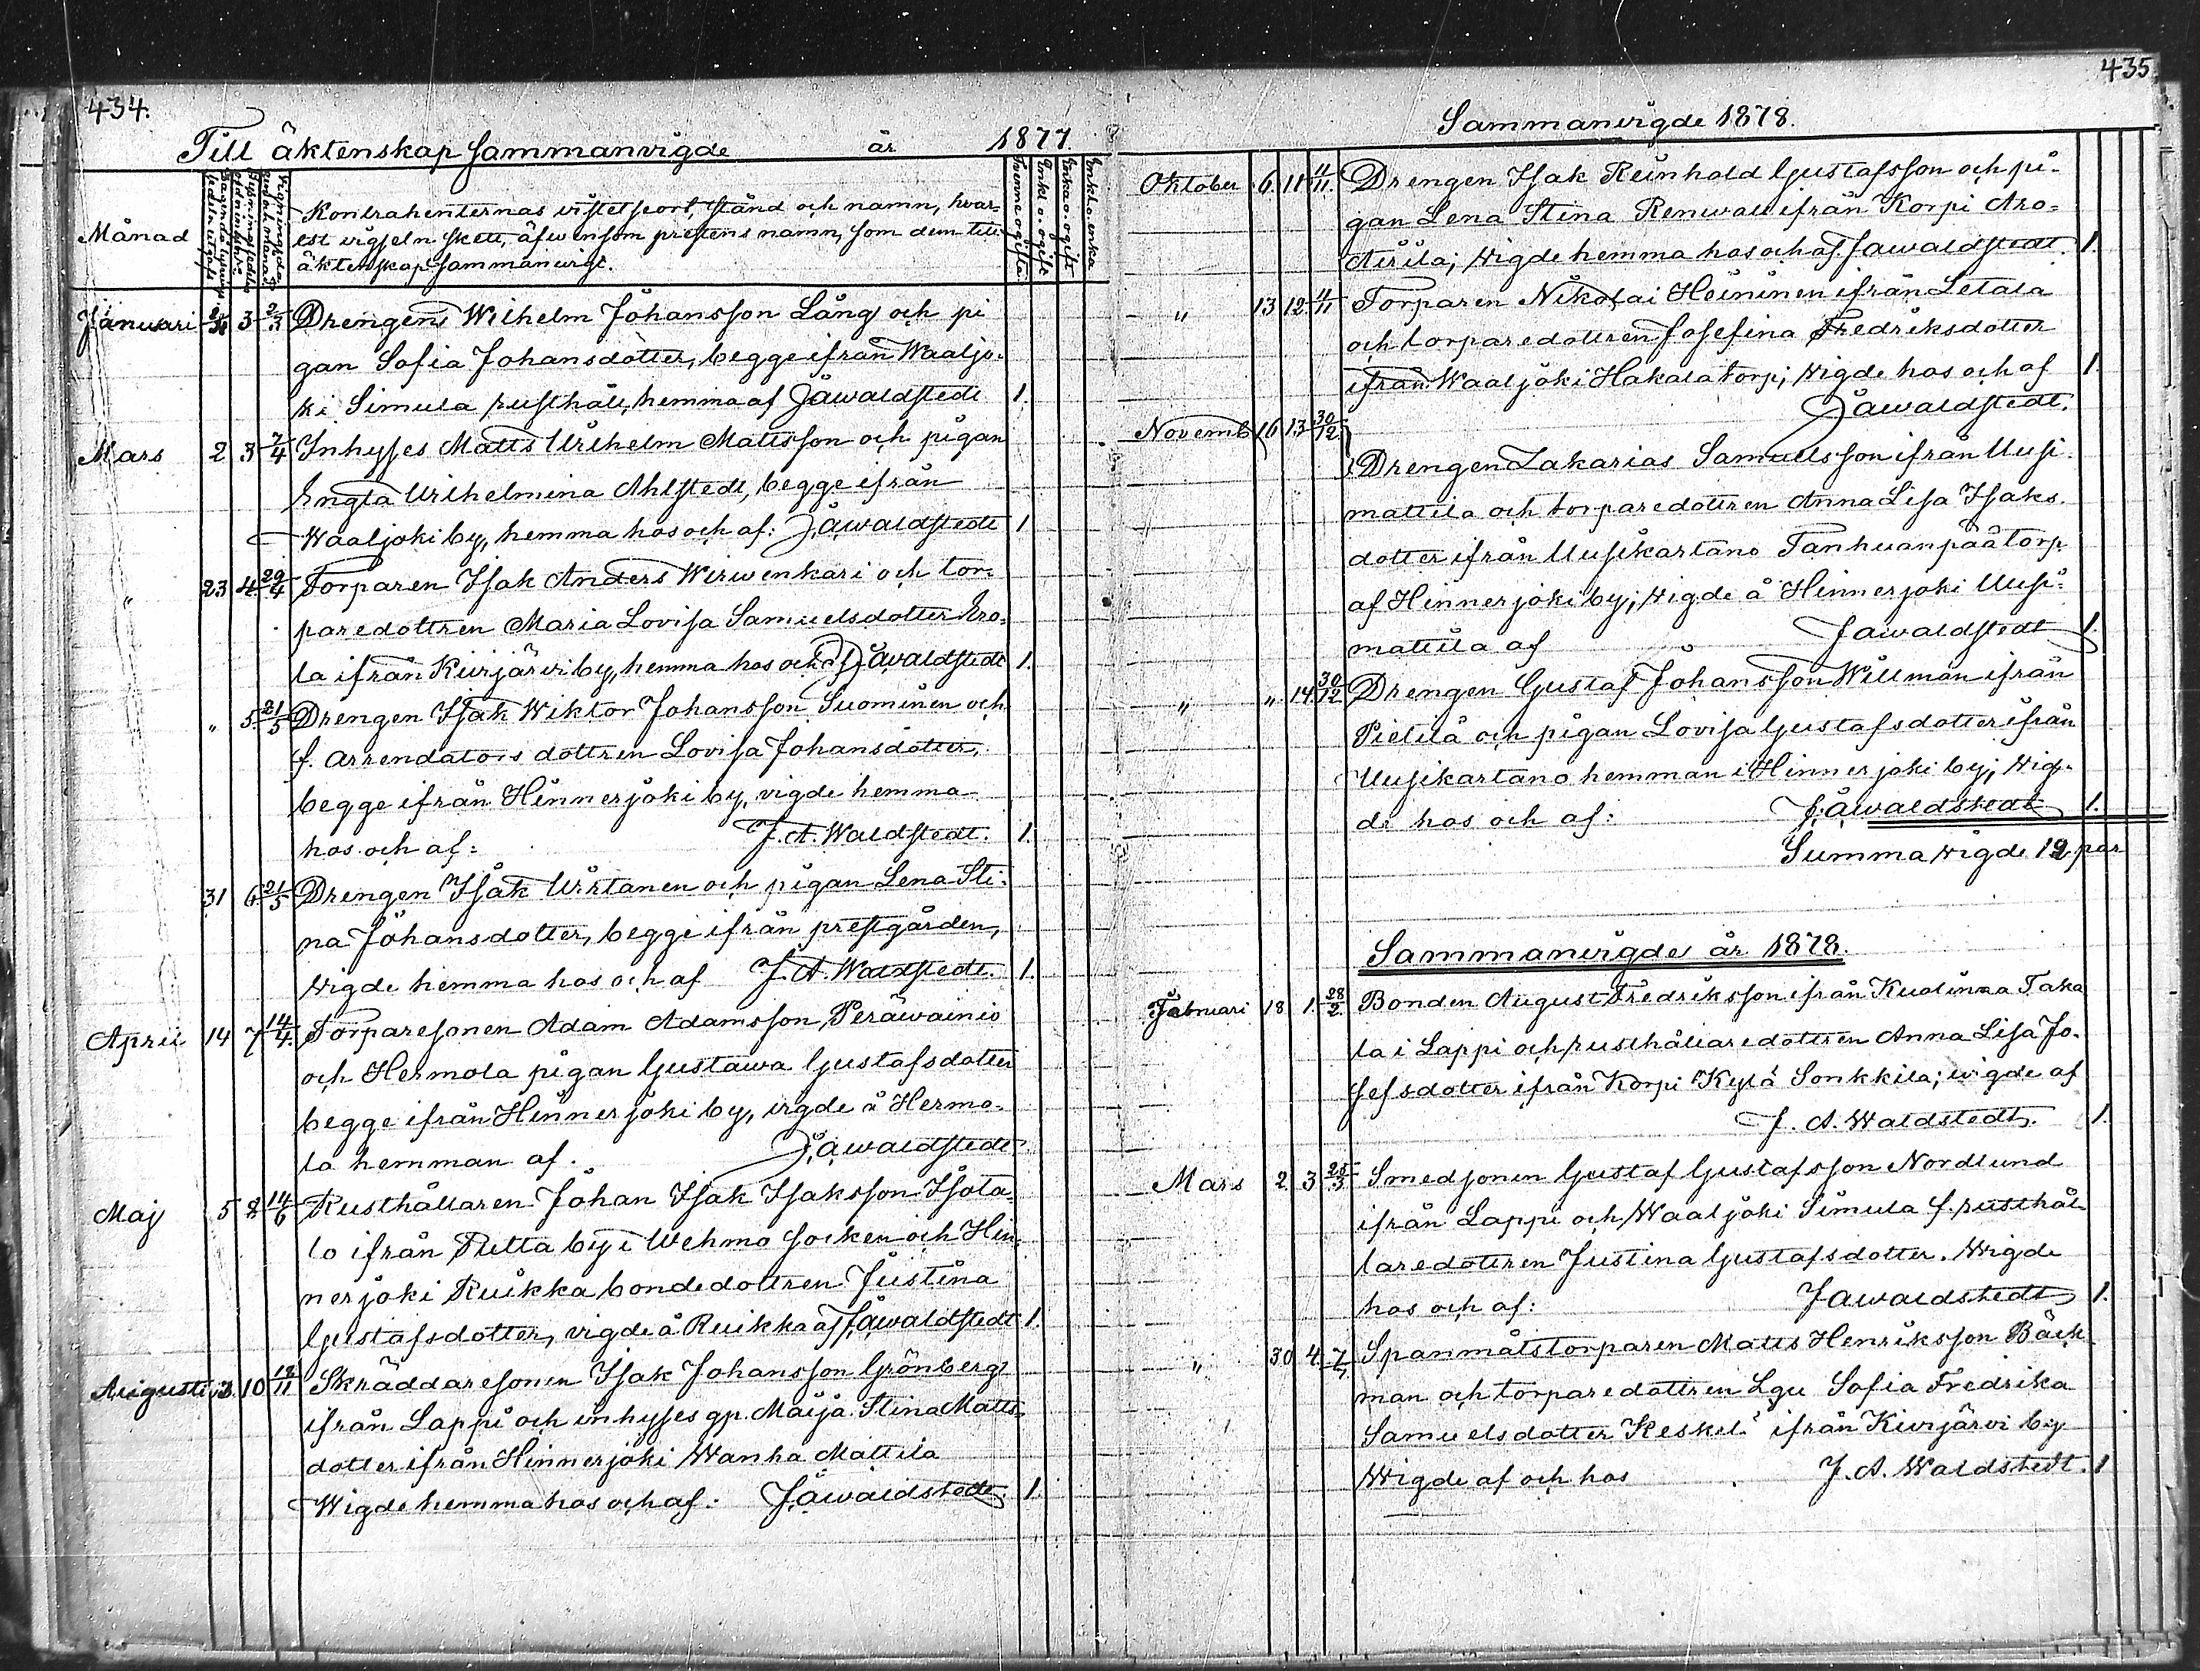 434.
Till äktenskap sammanvigde år 1877.
Månad
Kontrahenternas vistelseort, stånd och namn, hvar-
est vigseln skett, äfvensom prestens namn, som dem till
äktenskap sammanvigt.
Tvenne ogifta.
Enkl. o. ogift
Enka o. ogift
Enkl. o. enka
Januari 3 2/3 Drengen Wilhelm Johansson Lång och pi
gan Sofia Johansdotter, begge ifrån Waaljo-
ki Simula rusthåll, hemma af JAWaldstedt 1.
Mars 2 3 7/4 Inhyses Matts Wilhelm Mattsson och pigan
Engla Wilhelmina Ahlstedt, begge ifrån
Waaljoki by, hemma hos och af: JAWaldstedt 1
" 23 4 29/4 Torparen Isak Anders Wirwenkari och tor-
paredottren Maria Lovisa Samuelsdotter Ero-
la ifrån Kivijärvi by, hemma hos och af JAWaldstedt 1.
" 5. 21/5 Drengen Isak Wiktor Johansson Suominen och
f. arrendators dottren Lovisa Johansdotter,
begge ifrån Hinnerjoki by, vigde hemma
hos och af: J. A. Waldstedt. 1.
31 6 21/5 Drengen Isak Wirtanen och pigan Lena Sti-
na Johansdotter, begge ifrån prestgården,
Wigde hemma hos och af J. A. Waldstedt. 1.
April 14 7 14/4. Torparesonen Adam Adamsson Peräwainio
och Hermola pigan Gustawa Gustafsdotter
begge ifrån Hinnerjoki by, vigde å Hermo-
la hemman af. JAWaldstedt
Maj 5 8 14/6 Rusthållaren Johan Isak Isaksson Isota-
lo ifrån Rutta by i Wehmo socken och Hin-
nerjoki Ruikka bondedottren Justina
Gustafsdotter, vigde å Ruikka af JAWaldstedt 1.
Augusti 10 18/11 Skräddaresonen Isak Johansson Grönberg
ifrån Lappi och inhyses gp. Maija Stina Matts-
dotter ifrån Hinnerjoki Wanha Mattila
Wigde hemma hos och af: JAWaldstedt. 1.
435
Sammanvigde 1878.
Oktober 6 11 4/11. Drengen Isak Reinhold Gustafsson och pi-
gan Lena Stina Renwall ifrån Korpi Aro-
Airila; Wigde hemma hos och af JAWaldstedt. 1.
" 13 12 4/11 Torparen Nikolai Heininen ifrån Letala
och torparedottren Josefina Fredriksdotter
ifrån Waaljoki Hakala torp; Wigde hos och af 1.
JAWaldstedt.
Novemb 16 13 30/12
Drengen Zakarias Samuelsson ifrån Uusi-
mattila och torparedottren Anna Lisa Isaks
dotter ifrån Uusikartano Tanhuanpää torp
af Hinnerjoki by; Wigde å Hinnerjoki Uusi-
mattila af JAWaldstedt 1.
" " 14 30/12 Drengen Gustaf Johansson Willman ifrån
Pietilä och pigan Lovisa Gustafsdotter ifrån
Uusikartano hemman i Hinnerjoki by; Wig-
de hos och af: JAWaldstedt 1.
Summa Wigde 12 par
Sammanvigde år 1878.
Februari 18 1. 28/2. Bonden August Fredriksson ifrån Kuolinna Taka
la i Lappi och rusthållaredottren Anna Lisa Jo-
sefsdotter ifrån Korpi Kylä Sonkkila; wigde af
J. A. Waldstedt. 1.
Mars 2 3 25/3 Smedsonen Gustaf Gustafsson Nordlund
ifrån Lappi och Waaljoki Simula f. rusthål-
laredottren Justina Gustafsdotter. Wigde
hos och af: JAWaldstedt 1.
" 30 4. Spanmålstorparen Matts Henriksson Bäck-
man och torparedottren Sofia Fredrika
Samuelsdotter ifrån Kivijärvi by
Wigde af och hos J. A. Waldstedt. 1